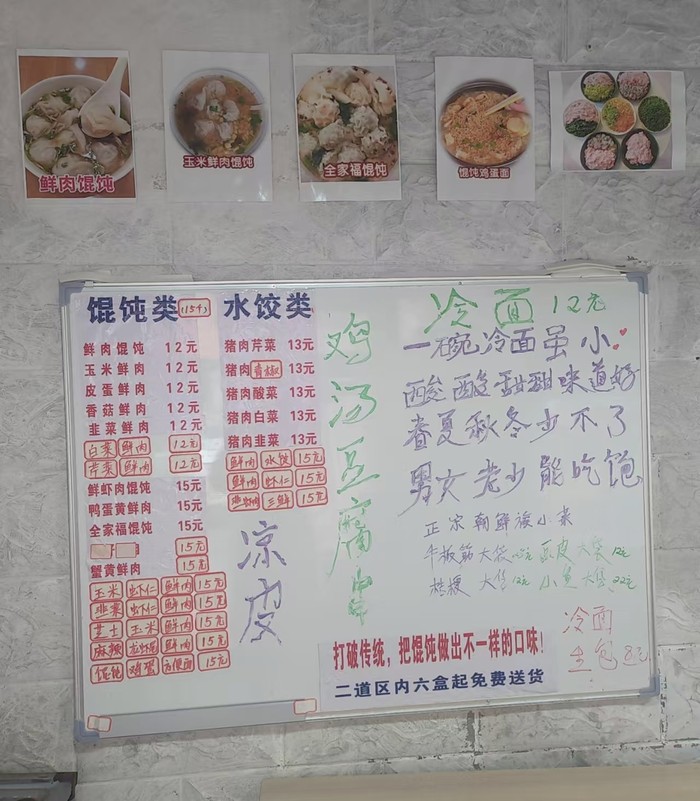 鲜肉馄饨
玉米鲜肉馄饨
全家福馄饨
馄饨鸡蛋面
馄饨类
水饺类
鲜肉馄饨 12元
玉米鲜肉 12元
皮蛋鲜肉 12元
香菇鲜肉 12元
韭菜鲜肉 12元
白菜 鲜肉 12元
芹菜 鲜肉 12元
鲜虾肉馄饨 15元
鸭蛋黄鲜肉 15元
全家福馄饨 15元
15元
蟹黄鲜肉 15元
玉米 虾仁 鲜肉 15元
韭菜 虾仁 鲜肉 15元
芝士 玉米 鲜肉 15元
麻辣 龙虾尾 鲜肉 15元
馄饨 鸡蛋 方便面 15元
猪肉芹菜 13元
猪肉青椒 13元
猪肉酸菜 13元
猪肉白菜 13元
猪肉韭菜 13元
鲜肉 水饺 15元
鲜肉 虾仁 15元
三鲜 15元
凉皮
鸡汤豆腐串
冷面 12元
一碗冷面虽小
酸酸甜甜味道好
春夏秋冬少不了
男女老少能吃饱
正宗朝鲜族小菜
牛板筋大袋 大袋 12元
桔梗 大袋12元 大袋 22元
冷面
8元
打破传统，把馄饨做出不一样的口味！
二道区内六盒起免费送货